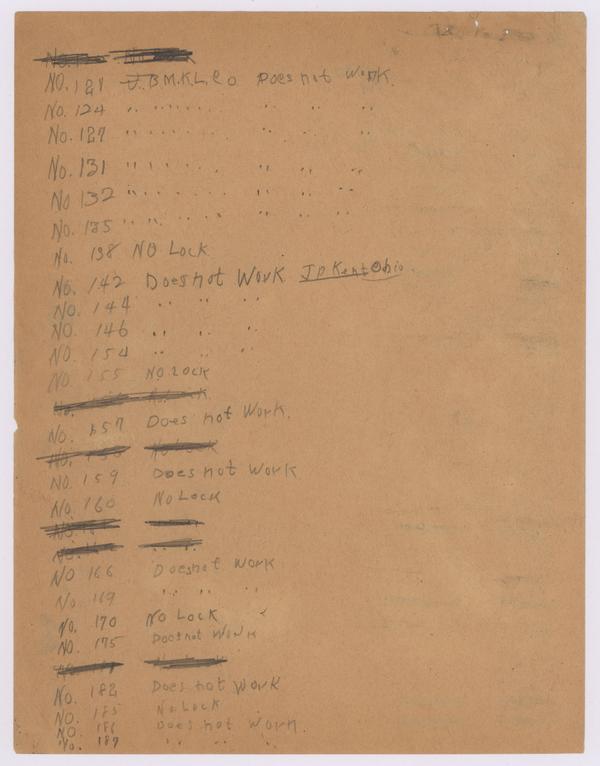 NO. 121 J.B M.K.L.Co Does not Work.
NO. 124 " " " " "
No. 127 " " " " "
NO. 131 " " " " "
NO 132 " " " " "
NO. 135 " " " " "
No. 138 NO Lock
NO. 142 Does not Work J.D Kent Ohio.
NO. 144 " " "
NO. 146 " " "
NO. 154 " " "
NO. 155 NO.Lock
NO. 157 Does not Work.
NO. 159 Does not Work
NO. 160 No Lock
NO 166 Does not Work
NO 169 " " "
No. 170 NO Lock
NO. 175 Does not Work
NO. 182 Does not Work
NO. 185 No Lock
NO. 186 Does not Work.
No. 187 " " "